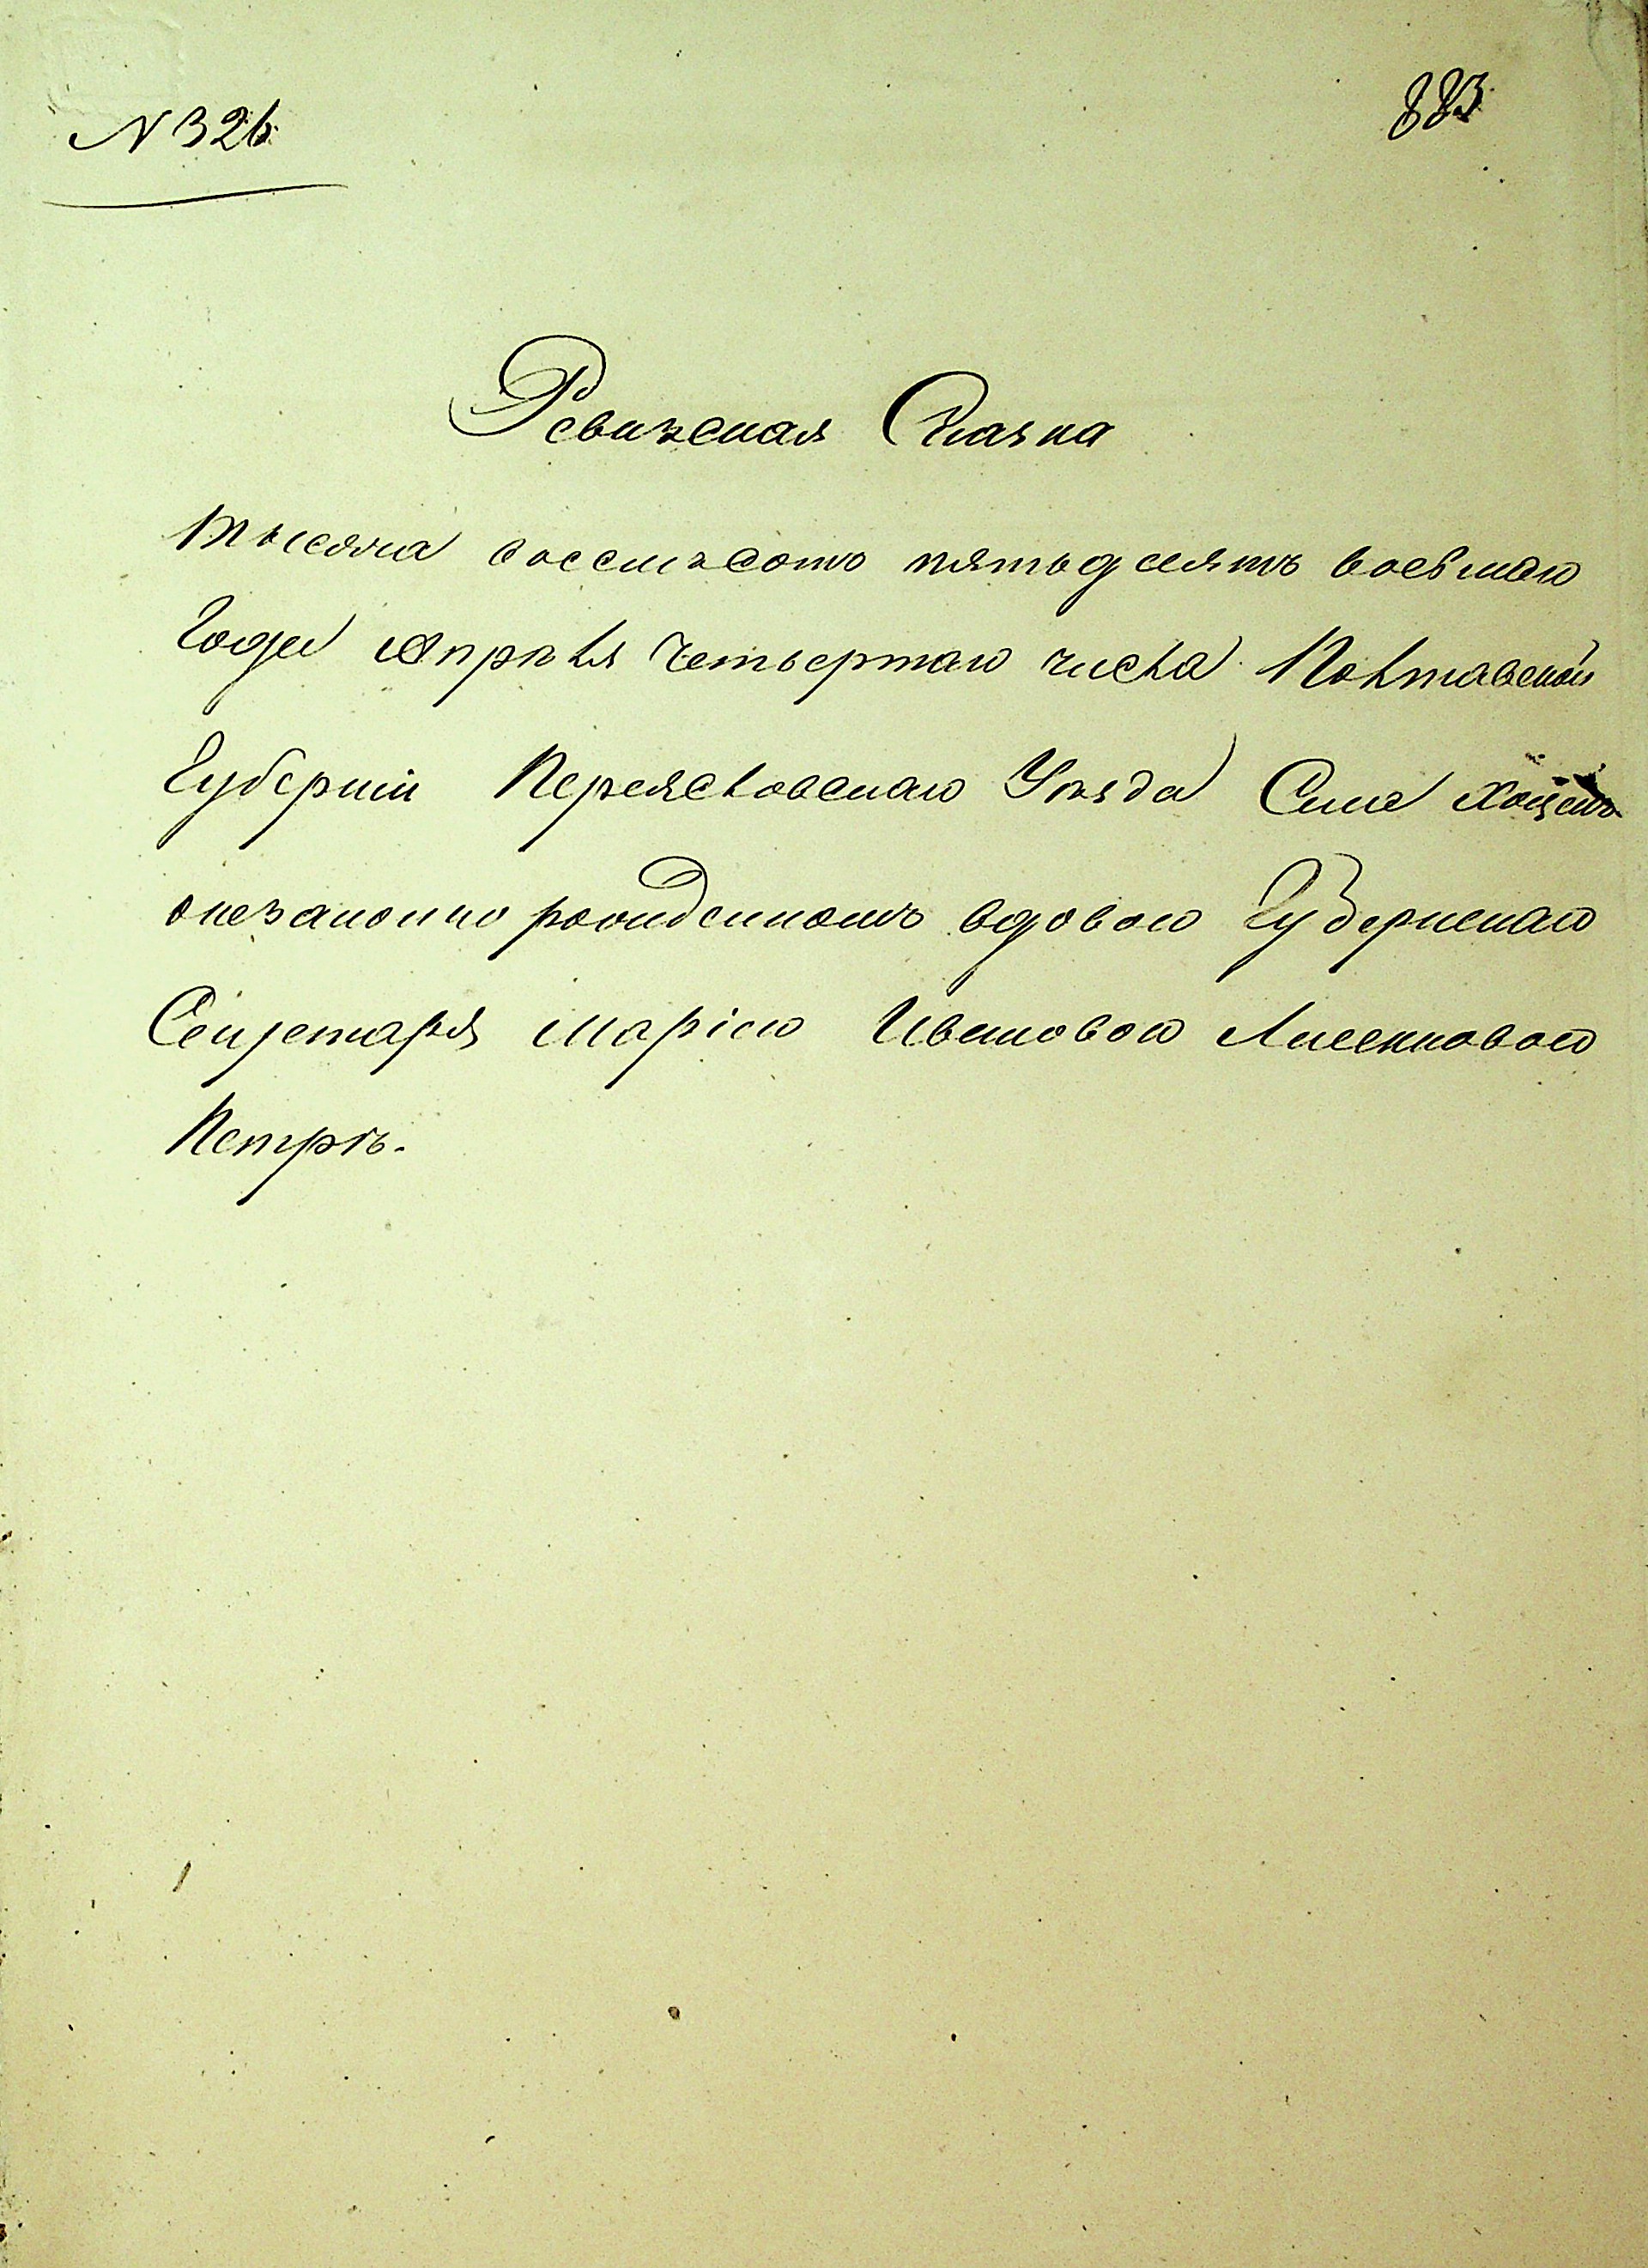 N 326
883
Ревизская Сказка
Тысяча восемьсотъ пятьдесятъ восьмаго
Года Апрѣля Четвертаго числа Полтавской
Губерніи Переясловскаго Уѣзда Села Хоцекъ
о незаконно рожденномъ вдовою Губернскаго
Секретаря Маріею Ивановою Лисенковою
Петрѣ.